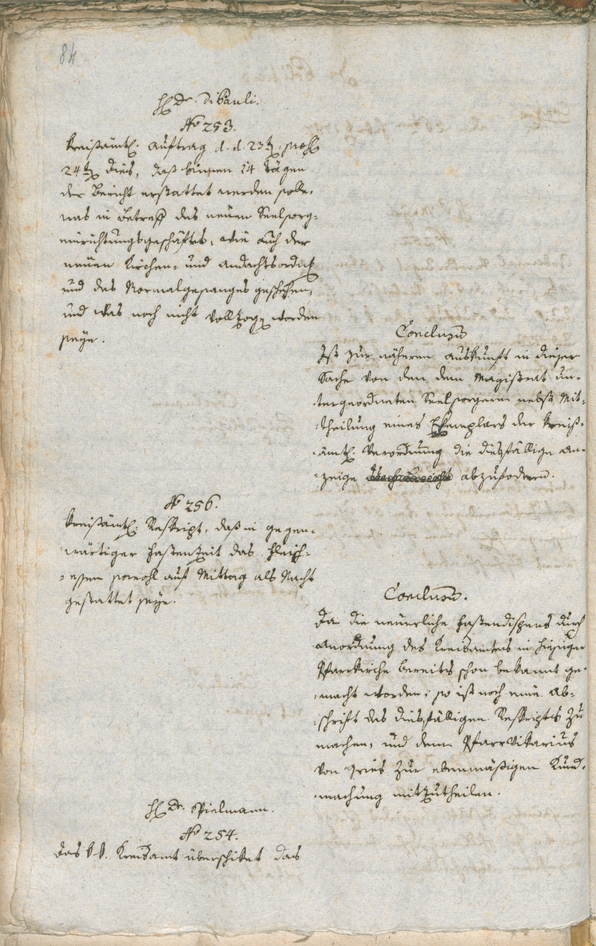 84
H Dr. Di Pauli.
No 253.
Kreisämtl. Auftrag d. d. 23t, 
24t dies, daß binnen 14 Tägen
der Bericht erstattet werden solle,
was in Betreff des neuen Seelsorg-
einrichtungsgeschäftes, wie auch der
neuen Kirchen- und Andachtsordng
und des Normalgesanges geschehen,
und was noch nicht vollzogen worden
seye.
Conclusum
Ist zur näheren Auskunft in dieser
Sache von den dem Magistrat un-
tergeordneten Seelsorgern nebst Mit-
theilung eines Exemplars der kreis-
ämtl. Verordnung die diesfällige An-
zeige abzufodern.
No 256.
Kreisämtl. Reskript, daß in gegen-
wärtiger Fastenzeit das Fleisch-
essen sowohl auf Mittag als Nacht
gestattet seye.
Conclusum.
Da die neuerliche Fastendispens durch
Anordnung des Kreisamtes in hiesiger
Pfarrkirche bereits schon bekannt ge-
macht worden; so ist noch eine Ab-
schrift des diesfälligen Reskripts zu
machen, und dem Pfarrvikarius
von Gries zur ebenmäßigen Kund-
machung mitzutheilen.
H Dr. Spielmann.
No 254.
Das k. k. Kreisamt überschiket das